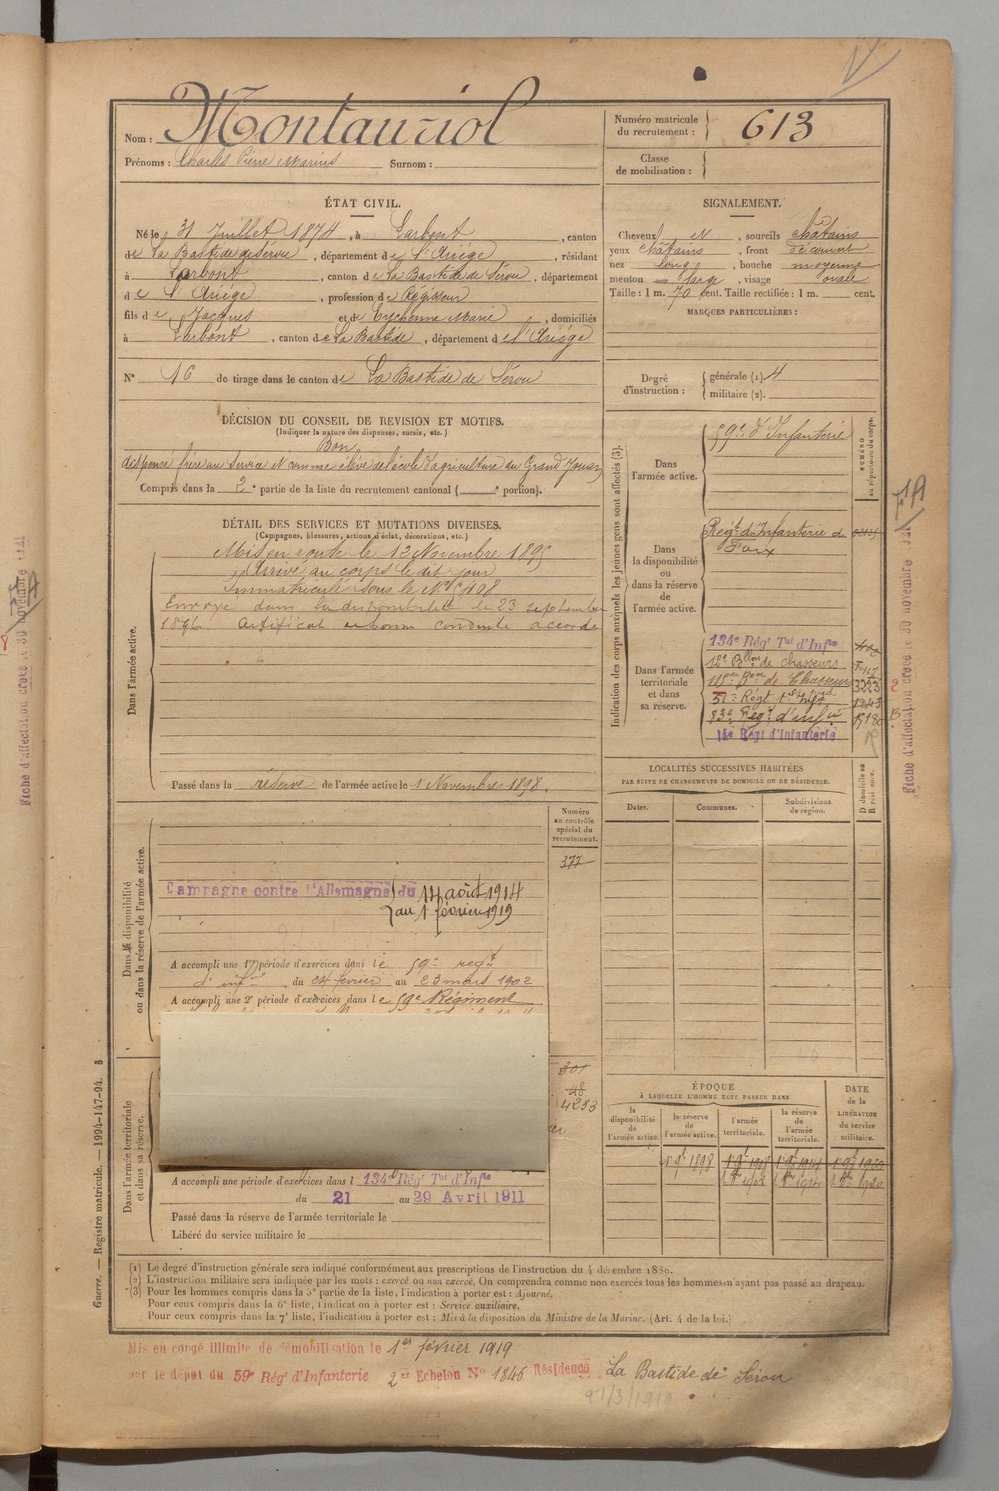 Nom : Montauriol
Prénoms : Charles Pierre Marius Surnom :
Numéro matricule du recrutement : 613
Classe de mobilisation :
ÉTAT CIVIL.
Né le 31 Juillet 1874, à Larbont, canton
de La Bastide de Sérou, département de l'Ariège, résidant
à Larbont, canton de La Bastide de Sérou, département
de l'Ariège, profession de Régisseur
fils de Jacques et de Eychenne Marie, domiciliés
à Larbont, canton de La Bastide, département de l'Ariège
N° 16 de tirage dans le canton de La Bastide de Sérou
SIGNALEMENT.
Cheveux N, sourcils châtains
yeux châtains, front découvert
nez long, bouche moyenne
menton large, visage ovale
Taille : 1 m. 70 cent. Taille rectifiée : 1 m. cent.
MARQUES PARTICULIÈRES :
Degré d'instruction : générale (1) 4
militaire (2).
DÉCISION DU CONSEIL DE REVISION ET MOTIFS.
(Indiquer la nature des dispenses, sursis, etc.)
Bon
dispensé frère au service et comme élève de l'école d'agriculture du Grand Jouan
Compris dans la 2e partie de la liste du recrutement cantonal ( e portion).
DÉTAIL DES SERVICES ET MUTATIONS DIVERSES.
(Campagnes, blessures, actions d'éclat, décorations, etc.)
Dans l'armée active.
Mis en route le 13 Novembre 1895
Arrivé au corps le dit jour
Immatriculé sous le N°
Envoyé dans la disponibilité le 23 septembre
1896. Certificat de bonne conduite accordé
Passé dans la réserve de l'armée active le 1 Novembre 1898.
Indication des corps auxquels les jeunes gens sont affectés (3).
NUMÉRO au répertoire du corps.
Dans l'armée active.
59e d'Infanterie
Dans la disponibilité ou dans la réserve de l'armée active.
Regt d'Infanterie de
Foix
Dans l'armée territoriale et dans sa réserve.
134e Régt Tal d'Infie
12e Bllon de chasseurs
115e Bon de Chasseurs 3223
83e Régt d'infie
14e Régt d'Infanterie
LOCALITÉS SUCCESSIVES HABITÉES
PAR SUITE DE CHANGEMENTS DE DOMICILE OU DE RÉSIDENCE.
Dates. Communes. Subdivisions de région. D domicile ou R résidence.
Dans la disponibilité ou dans la réserve de l'armée active.
Numéro au contrôle spécial du recrutement.
377
Campagne contre l'Allemagne du 14 août 1914
au 1 février 1919
A accompli une 1re période d'exercices dans le 59e regt
d'infie du 24 février au 23 mars 1902
A accompli une 2e période d'exercices dans le 59e Régiment
Dans l'armée territoriale et dans sa réserve.
301
48
4233
A accompli une période d'exercices dans l 134e Régt Tal d'Infie
du 21 au 29 Avril 1911
Passé dans la réserve de l'armée territoriale le
Libéré du service militaire le
ÉPOQUE
À LAQUELLE L'HOMME DOIT PASSER DANS
la disponibilité de l'armée active.
la réserve de l'armée active.
l'armée territoriale.
la réserve de l'armée territoriale.
DATE de la LIBÉRATION du service militaire.
(1) Le degré d'instruction générale sera indiqué conformément aux prescriptions de l'instruction du 4 décembre 1889.
(2) L'instruction militaire sera indiquée par les mots : exercé ou non exercé. On comprendra comme non exercés tous les hommes n'ayant pas passé au drapeau.
(3) Pour les hommes compris dans la 5e partie de la liste, l'indication à porter est : Ajourné.
Pour ceux compris dans la 6e liste, l'indication à porter est : Service auxiliaire.
Pour ceux compris dans la 7e liste, l'indication à porter est : Mis à la disposition du Ministre de la Marine. (Art. 4 de la loi.)
Guerre. — Registre matricule. — 1994-147-94. B
Mis en congé illimité de démobilisation le 1er février 1919
par le dépôt du 59e Régt d'Infanterie 2e Echelon N° 1846 Résidence La Bastide de Sérou
21/3/1919